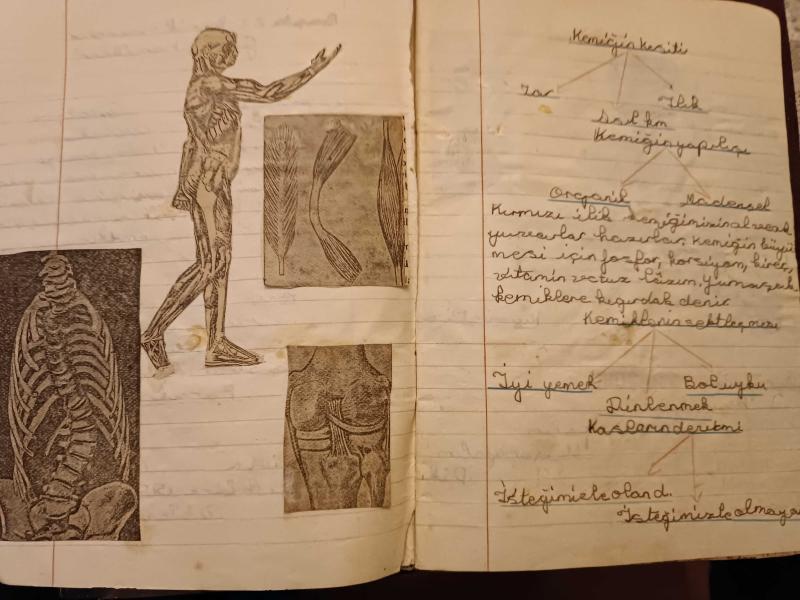 Kemiğin kesiti
Zar
İlik
Sal km
Kemiğin yapılışı
Organik
Madensel
Kırmızı ilik kemiğimizin al
yuvarlar hazırlar. Kemiğin büyü
mesi için fosfor, kalsiyom, kireç,
vitamin ve tuz lâzım. Yumuşak
kemiklere kıgırdak denir
Kemiklerin sertleşmesi
İyi yemek
Bol uyku
Dinlenmek
Kasların
İsteğimizle oland.
İsteğimizle olmayan